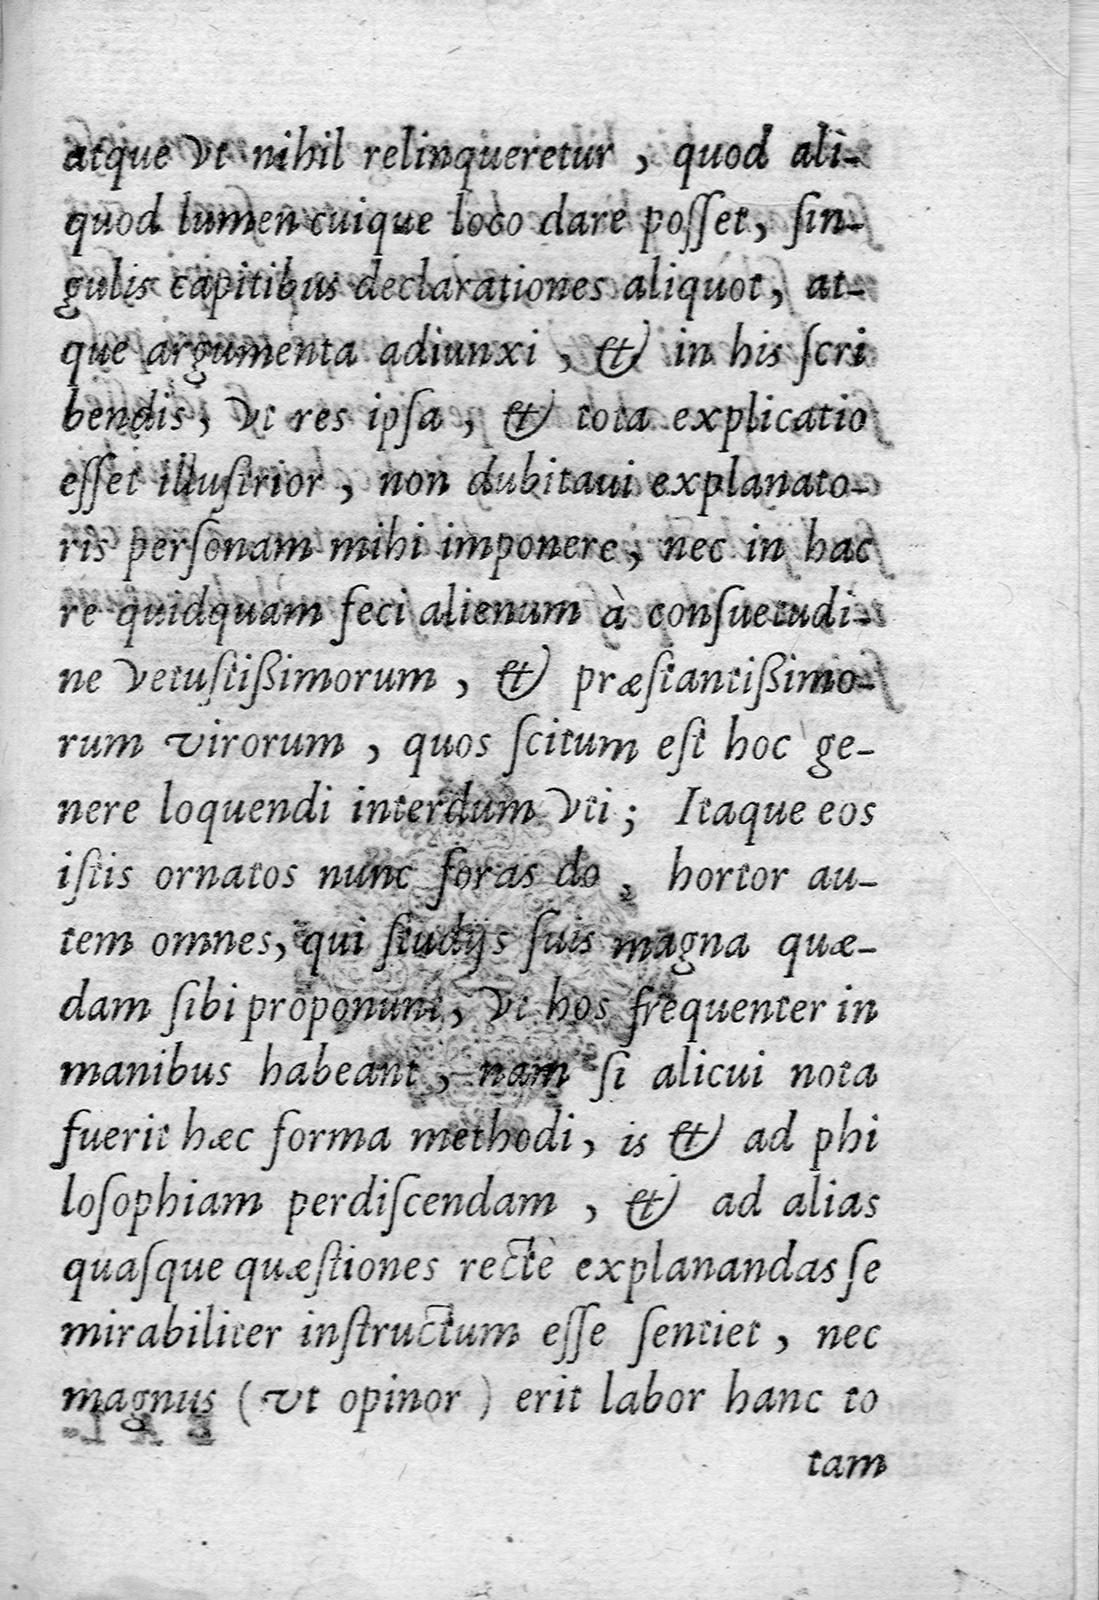 atque vt nihil relinqueretur , quod ali-
quod lumen cuique loco dare poſſet, ſin-
gulis capitibus declarationes aliquot, at-
que argumenta adiunxi , & in his ſcri
bendis, vt res ipſa , & tota explicatio
eſſet illuſtrior , non dubitaui explanato-
ris perſonam mihi imponere, nec in hac
re quidquam feci alienum à conſuetudi-
ne vetuſtißimorum , & præſtantißimo-
rum virorum , quos ſcitum eſt hoc ge-
nere loquendi interdum vti ; Itaque eos
iſtis ornatos nunc foras do , hortor au-
tem omnes, qui ſtudijs ſuis magna quæ-
dam ſibi proponunt, vt hos frequenter in
manibus habeant , nam ſi alicui nota
fuerit hæc forma methodi, is & ad phi
loſophiam perdiſcendam , & ad alias
quaſque quæſtiones rectè explanandas ſe
mirabiliter inſtructum eſſe ſentiet , nec
magnus ( vt opinor ) erit labor hanc to
tam